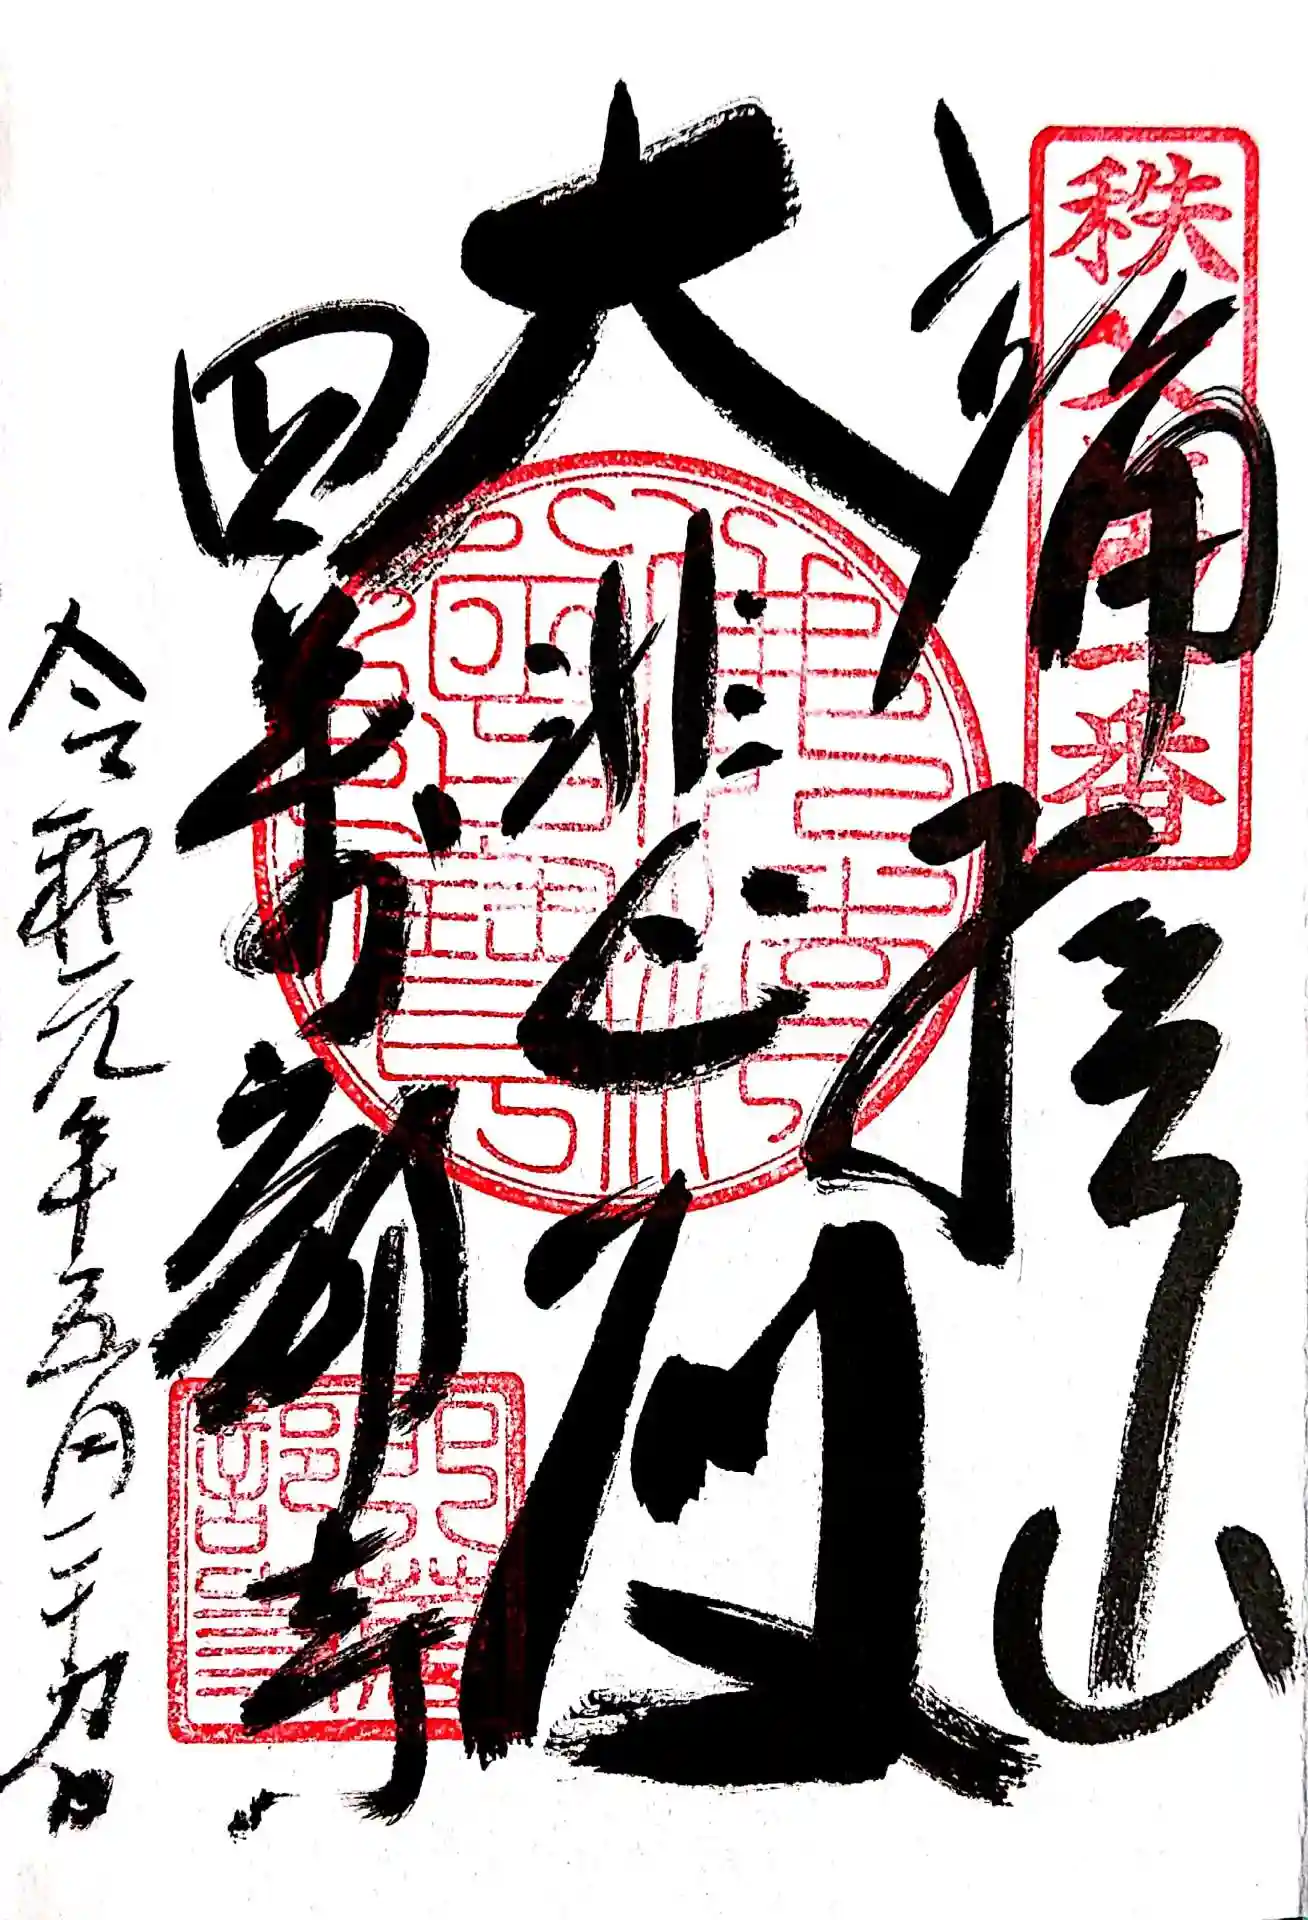 秩父第一番
誦経山
大悲殿
四萬部寺
令和元年五月二十九日